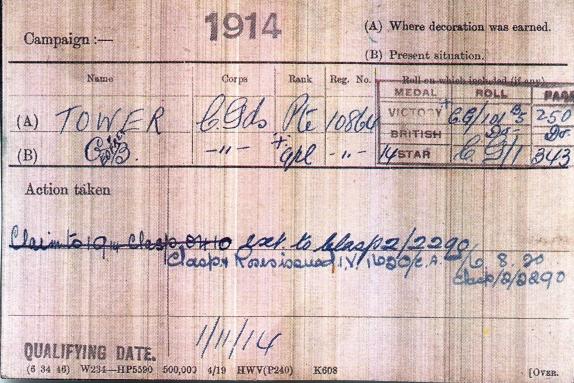 1914
Campaign :—
(A) Where decoration was earned.
(B) Present situation.
Name Corps Rank Reg. No. Roll on which included (if any)
MEDAL ROLL PAGE
(A) TOWER C.Gds Pte 10864
VICTORY CG/101 B5 250
BRITISH Do Do
(B) -"- Cpl -"-
14 STAR CG/1 343
Action taken
Claim to 1914 Clasp ext. to Clasp 2/2290
Clasp & Roses issued IV/1620/E.A. 8.20
Clasp/2/2290
1/11/14
QUALIFYING DATE.
(6 34 46) W234—HP5590 500,000 4/19 HWV(P240) K608 [OVER.